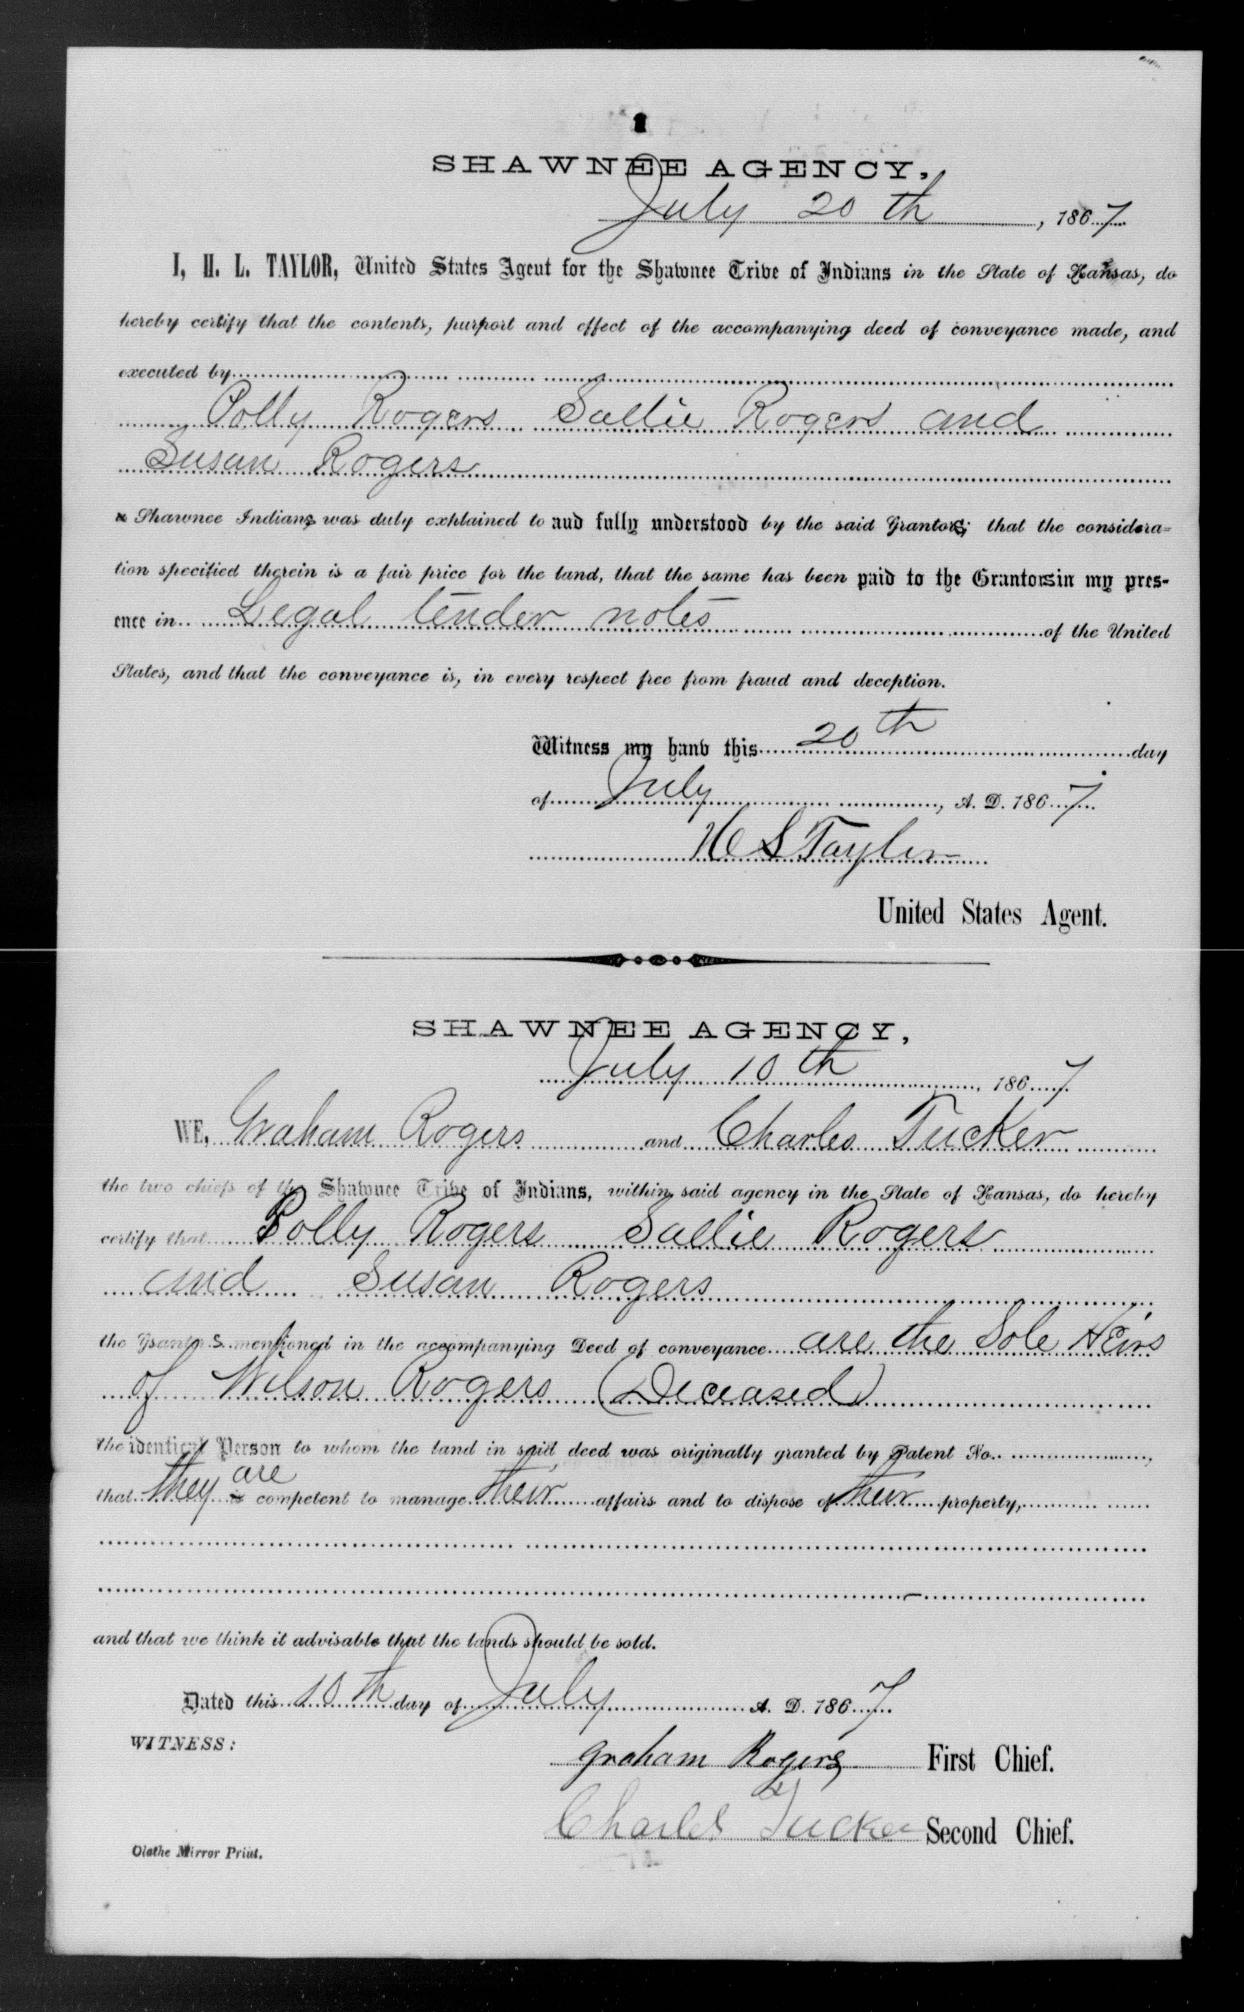 SHAWNEE AGENCY,
July 20th, 1867
I, H. L. TAYLOR, United States Agent for the Shawnee Tribe of Indians in the State of Kansas, do
hereby certify that the contents, purport and effect of the accompanying deed of conveyance made, and
executed by
Polly Rogers Sallie Rogers and
Susan Rogers
a Shawnee Indians was duly explained to and fully understood by the said Grantors; that the considera-
tion specified therein is a fair price for the land, that the same has been paid to the Grantors in my pres-
ence in Legal tender notes of the United
States, and that the conveyance is, in every respect free from fraud and deception.
Witness my hand this 20th day
of July, A. D. 1867
H L Taylor
United States Agent.
SHAWNEE AGENCY,
July 10th, 1867
WE, Graham Rogers and Charles Tucker
the two chiefs of the Shawnee Tribe of Indians, within said agency in the State of Kansas, do hereby
certify that Polly Rogers Sallie Rogers
and Susan Rogers
the Grantors mentioned in the accompanying Deed of conveyance are the Sole Heirs
of Wilson Rogers (Deceased)
the identical Person to whom the land in said deed was originally granted by Patent No.,
that they are is competent to manage their affairs and to dispose of their property,
and that we think it advisable that the lands should be sold.
Dated this 10th day of July A. D. 1867
WITNESS:
Graham Rogers First Chief.
Charles Tucker Second Chief.
Olathe Mirror Print.